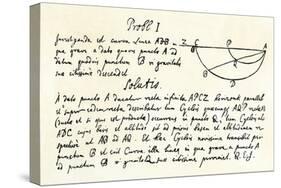 Probl I
Investiganda est curva Linea ADB in
qua grave a dato quovis puncto A ad
datum quodvis punctum B vi gravitatis
suæ citissime descendet
Z C P A
Q
B
D
Solutio.
A dato puncto A ducatur recta infinita APCZ horizonti parallela
et super eadem recta describatur tum Cyclois quæcunque AQP rectæ AB
(ductæ et si opus est productæ) occurrens in puncto Q, tum Cyclois alia
ADC cujus basis et altitudo sit ad prioris basem et altitudinem re-
spective ut AB ad AQ. Et hæc Cyclois novissima transibit per
punctum B et erit Curva illa linea in qua grave a puncto A
ad punctum B vi gravitatis suæ citissime perveniet. Q.E.I.